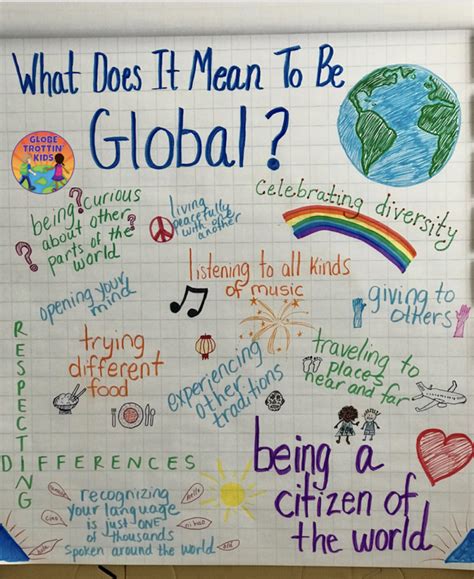 What Does It Mean To Be
Global?
GLOBE
TROTTIN'
KIDS
being curious
about other
parts of the
world
?
?
living
peacefully
with one
another
Celebrating diversity
opening your
mind
listening to all kinds
of music
giving to
others
trying
different
food
experiencing
other
traditions
traveling to
places
near and far
RESPECTING
DIFFERENCES
being a
citizen of
the world
recognizing
your language
is just ONE
of thousands
spoken around the world
hello
ciao
ni hao
hola